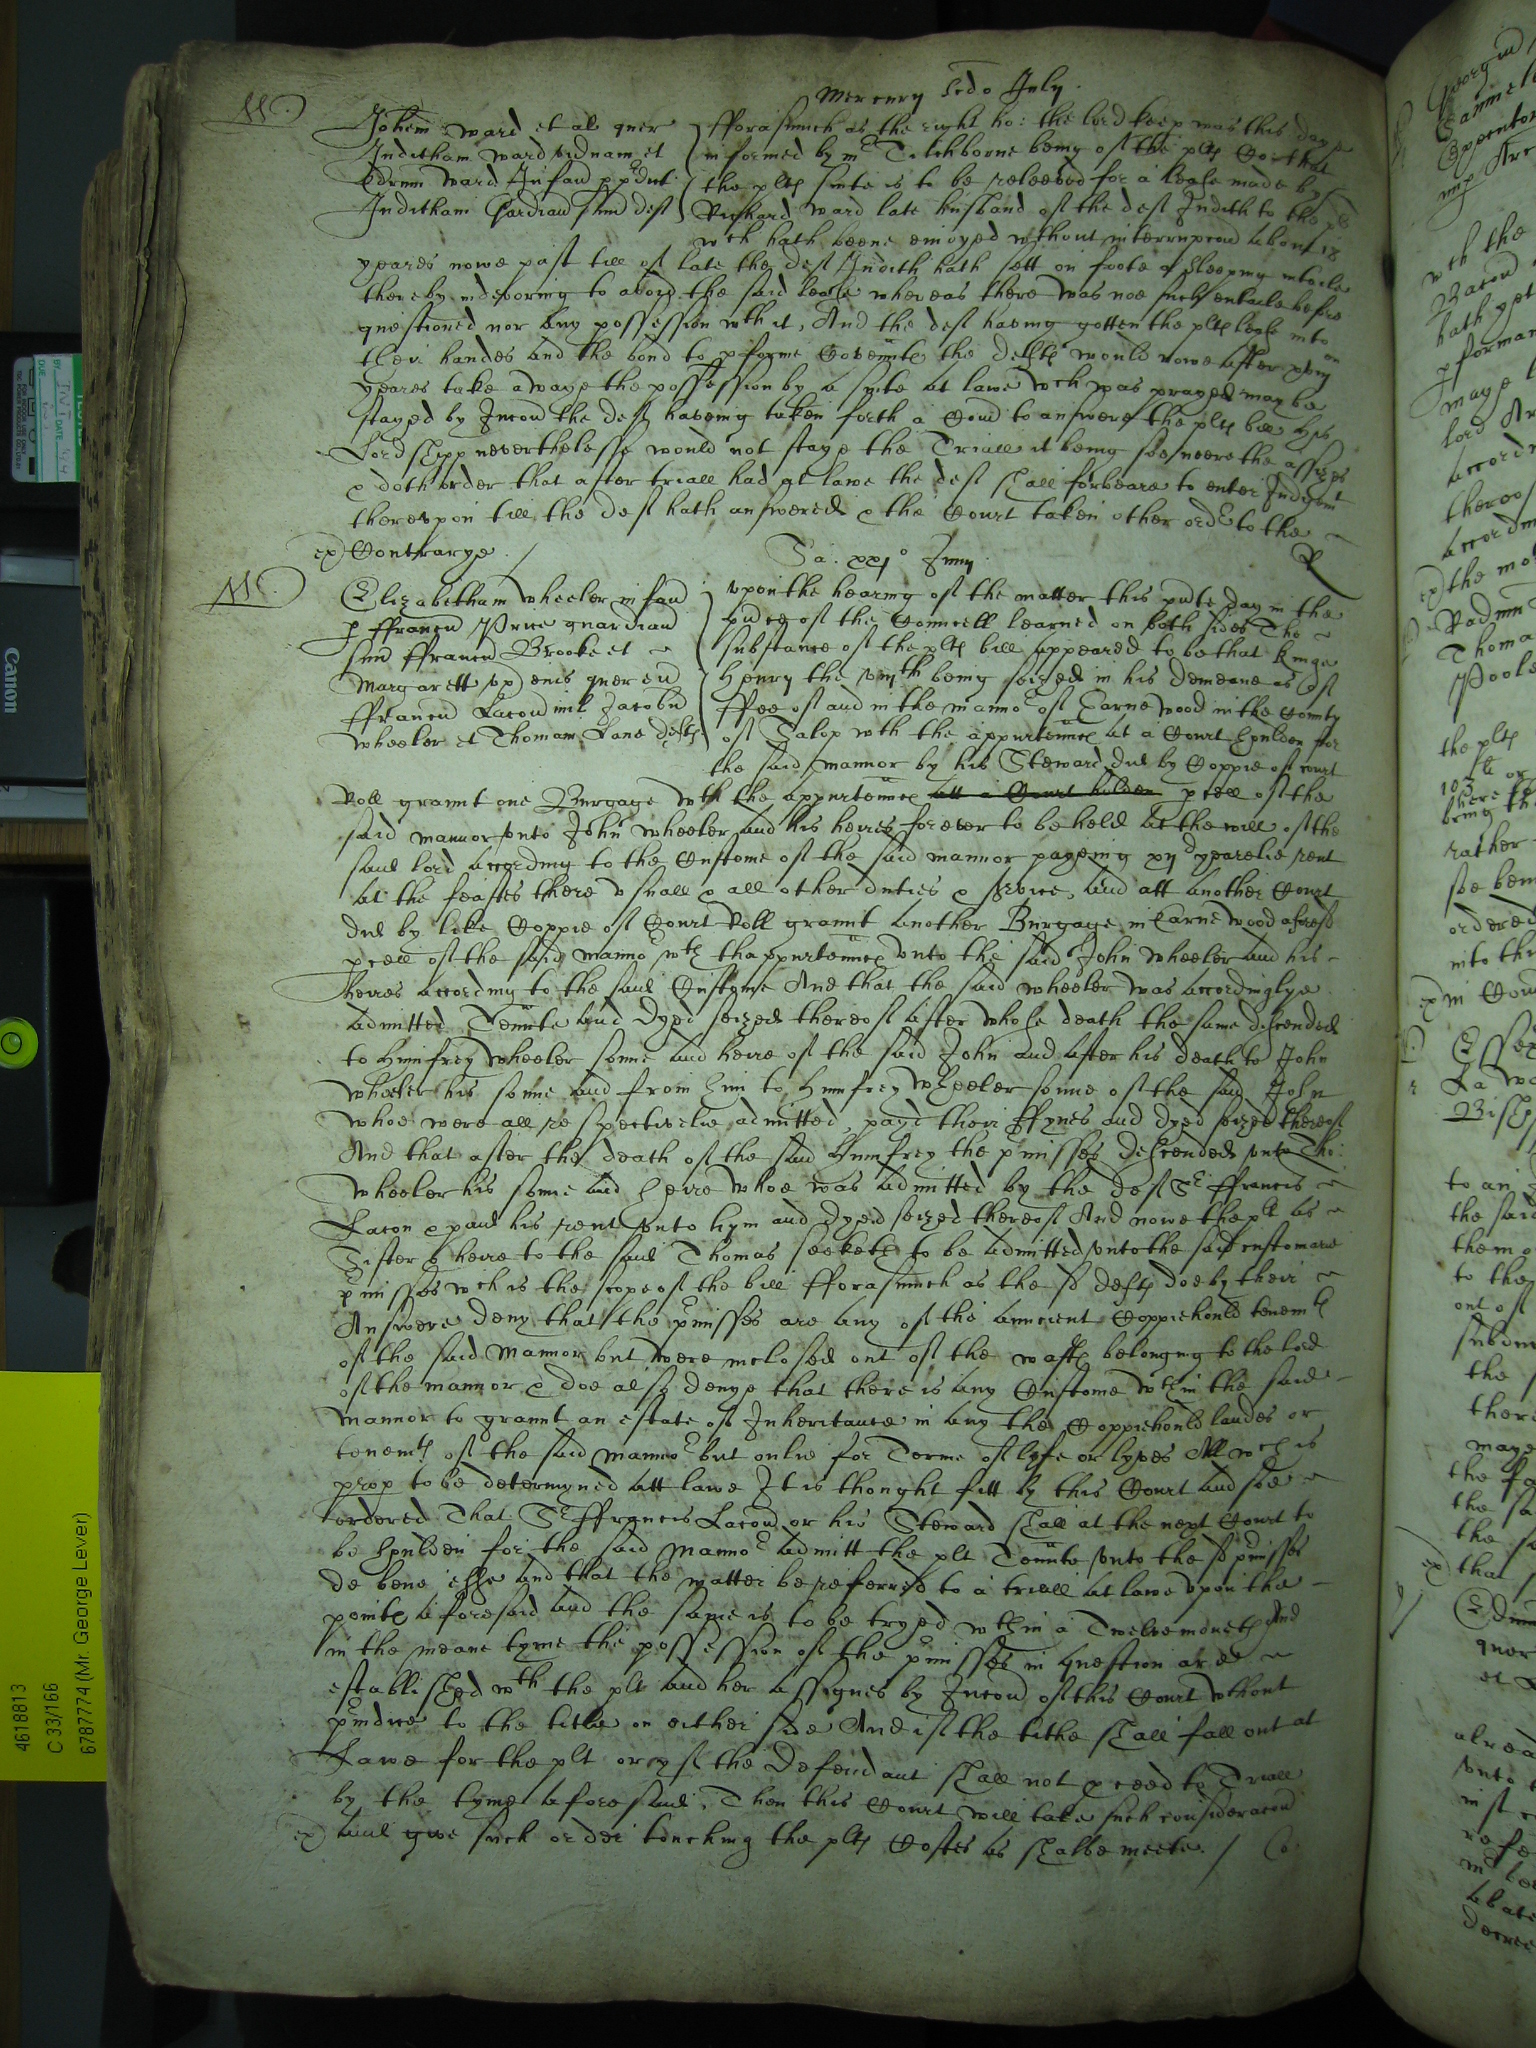 Mercurij scdo July
W.
Johem Ward et al quer
Juditham Ward vid nam et
Edrum Ward Infan p pdict
Juditham Gardian suu def
fforasmuch as the right ho: the lord keep was this day
informed by mr Titchborne being of the plts Co that
the plts suite is to be releeved for a lease made by
Richard Ward late husband of the def Judith to the
wch hath beene enioyed wthout interrupcon about 18
yeares nowe past till of late the def Judith hath sett on foote a sleeping intaile
thereby indevoring to avoid the said lease whereas there was noe such entaile before
questioned nor any possession wth it, And the def having gotten the plts lease into
their handes and the bond to pforme Covennts the defts would nowe after
yeares take awaye the possession by a suite at lawe wch was prayed may be
stayed by Iniucon the deft haveing taken forth a Comd to answere the plts bill his
Lordshipp neverthelesse would not staye the Triall it being soe neere the assizes
& doth order that after triall had at lawe the def shall forbeare to enter Iudgmt
therevpon till the def hath answered & the Court taken other ordr to the
ex) Contrarye. / Sa. xxj° Juny R
W.
Elizabetham Wheeler infan
p ffrancu Prue guardian
suu ffrancu Brooke et
Margarett vx eius quer cu
ffrancu Lacon mil Jacobu
Wheeler et Thomam Lane defts
vpon the hearing of the matter this pnte day in the
pnce of the Councell learned on both sides The
substance of the plts bill appeared to be that kinge
Henry the viijth being seized in his demeane as of
ffee of and in the mannor of Earnewood in the County
of Salop wth the appurtennces at a Court houlden for
the said mannor by his Steward did by Coppie of court
Roll graunt one Burgage wth the appurtennces att a Court holden pcell of the
said mannor vnto John Wheeler and his heires forever to be held at the will of the
said lord according to the Custome of the said mannor payeing xij d yearelie rent
at the feastes there vsuall & all other duties & service, and att another Court
did by like Coppie of Court Roll graunt another Burgage in Earnewood aforesd
pcell of the said mannor wth thappurtennces vnto the said John Wheeler and his
heires according to the said Custome And that the said Wheeler was accordinglye
admitted Tennte and dyed seized thereof after whose death the same descended
to Humfrey Wheeler sonne and heire of the said John and after his death to John
Wheeler his sonne and from him to Humfrey Wheeler sonne of the said John
whoe were all respectivelie admitted, payd their ffynes and dyed seized thereof
And that after the death of the said Humfrey the pmisses descended vnto Tho:
Wheeler his sonne and heire whoe was admitted by the def Sr ffrancis
Lacon & paid his rent vnto hym and dyed seized thereof And nowe the plt as
Sister & heire to the said Thomas seeketh to be admitted vnto the said customarie
pmisses wch is the scope of the bill fforasmuch as the sd defts doe by their
Answere deny that the pmisses are any of the auncient Coppiehould tenemts
of the said Mannor but were inclosed out of the wasts belonging to the lord
of the mannor & doe also denye that there is any Custome wthin the said
mannor to graunt an estate of Inheritance in any the Coppiehould landes or
tenemts of the said mannor but onlie for Terme of lyfe or lyves All wch is
prop to be determyned att lawe It is thought fitt by this Court and soe
ordered That Sr ffrancis Lacon or his Steward shall at the next Court to
be houlden for the said Mannor admitt the plt Tennte vnto the sd pmisses
de bene esse and that the matter be referred to a triall at lawe vpon the
pointes aforesaid and the same is to be tryed wthin a Twelvemoneth And
in the meane tyme the possession of the pmisses in question are
established wth the plt and her assignes by Iniucon of this Court wthout
preiudice to the title on either side And if the title shall fall out at
Lawe for the plt or yf the Defendant shall not pceed to Triall
by the tyme aforesaid, Then this Court will take such consideracon
ex) and give such order touching the plts Costes as shalbe meete. / Co.
Canon
4618813
C 33/166
6787774 (Mr. George Lever)